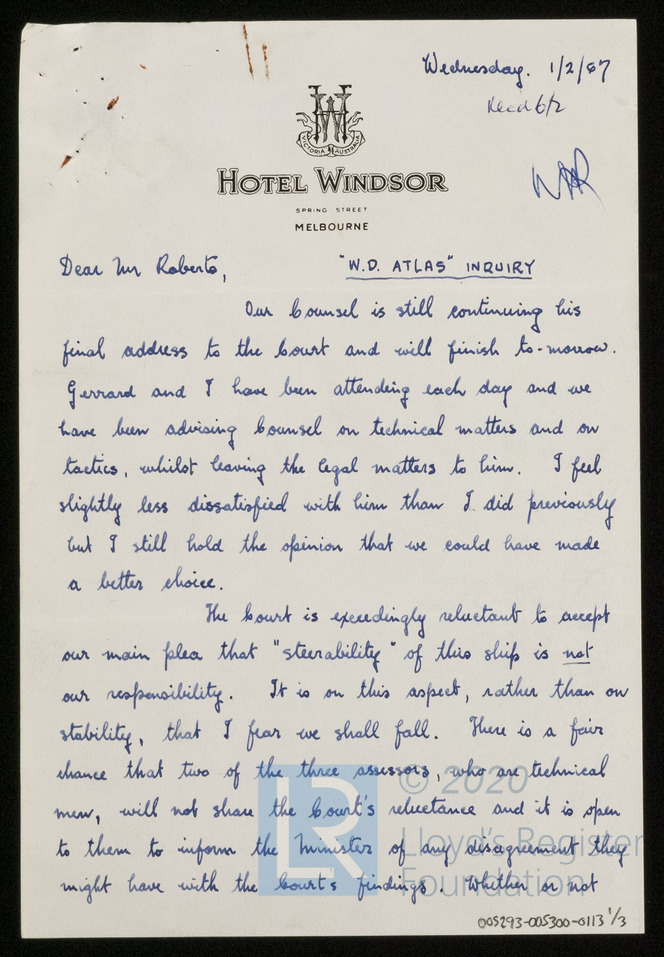 Wednesday. 1/2/67
Recd 6/2
VICTORIA AUSTRALIA
HOTEL WINDSOR
SPRING STREET
MELBOURNE
Dear Mr Roberts,
"W.D. ATLAS" INQUIRY
Our Counsel is still continuing his
final address to the Court and will finish to-morrow.
Gerrard and I have been attending each day and we
have been advising Counsel on technical matters and on
tactics, whilst leaving the legal matters to him. I feel
slightly less dissatisfied with him than I did previously
but I still hold the opinion that we could have made
a better choice.
The Court is exceedingly reluctant to accept
our main plea that "steerability" of this ship is not
our responsibility. It is on this aspect, rather than on
stability, that I fear we shall fall. There is a fair
chance that two of the three assessors, who are technical
men, will not share the Court's reluctance and it is open
to them to inform the Minister of any disagreement they
might have with the Court's findings. Whether or not
LR
© 2020
Lloyd's Register
Foundation
005293-005300-0113 1/3